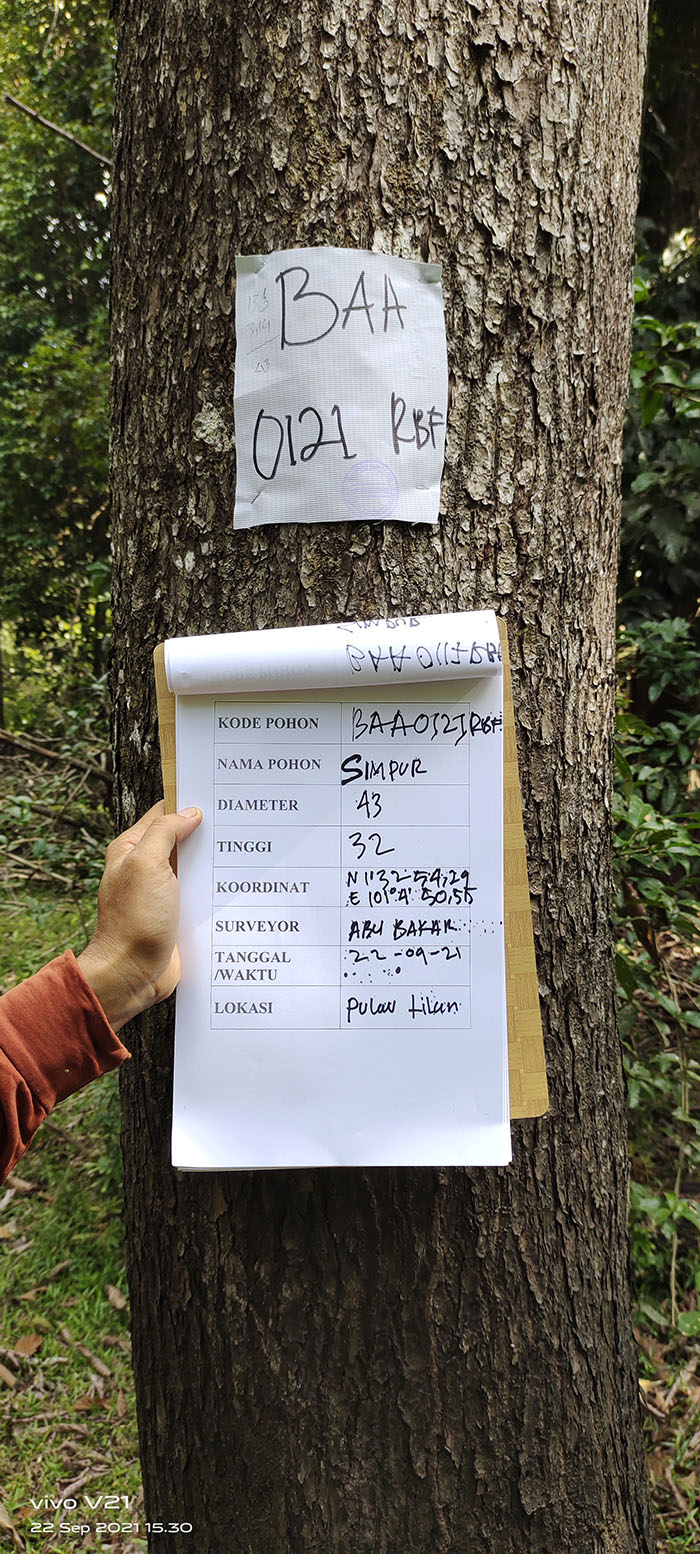 BAA
136
3,14
43
0121 RBF
KODE POHON BAA0121RBF
NAMA POHON SIMPUR
DIAMETER 43
TINGGI 32
KOORDINAT N 1°32 54,29
E 101°4' 50,55
SURVEYOR ABU BAKAR
TANGGAL 22-09-21
/WAKTU
LOKASI Pulau tilan
vivo V21
22 Sep 2021 15.30